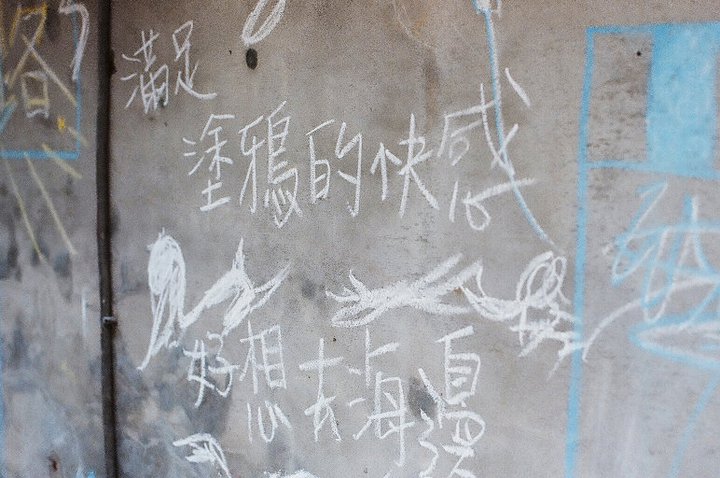 滿足
塗鴉的快感
好想去海邊